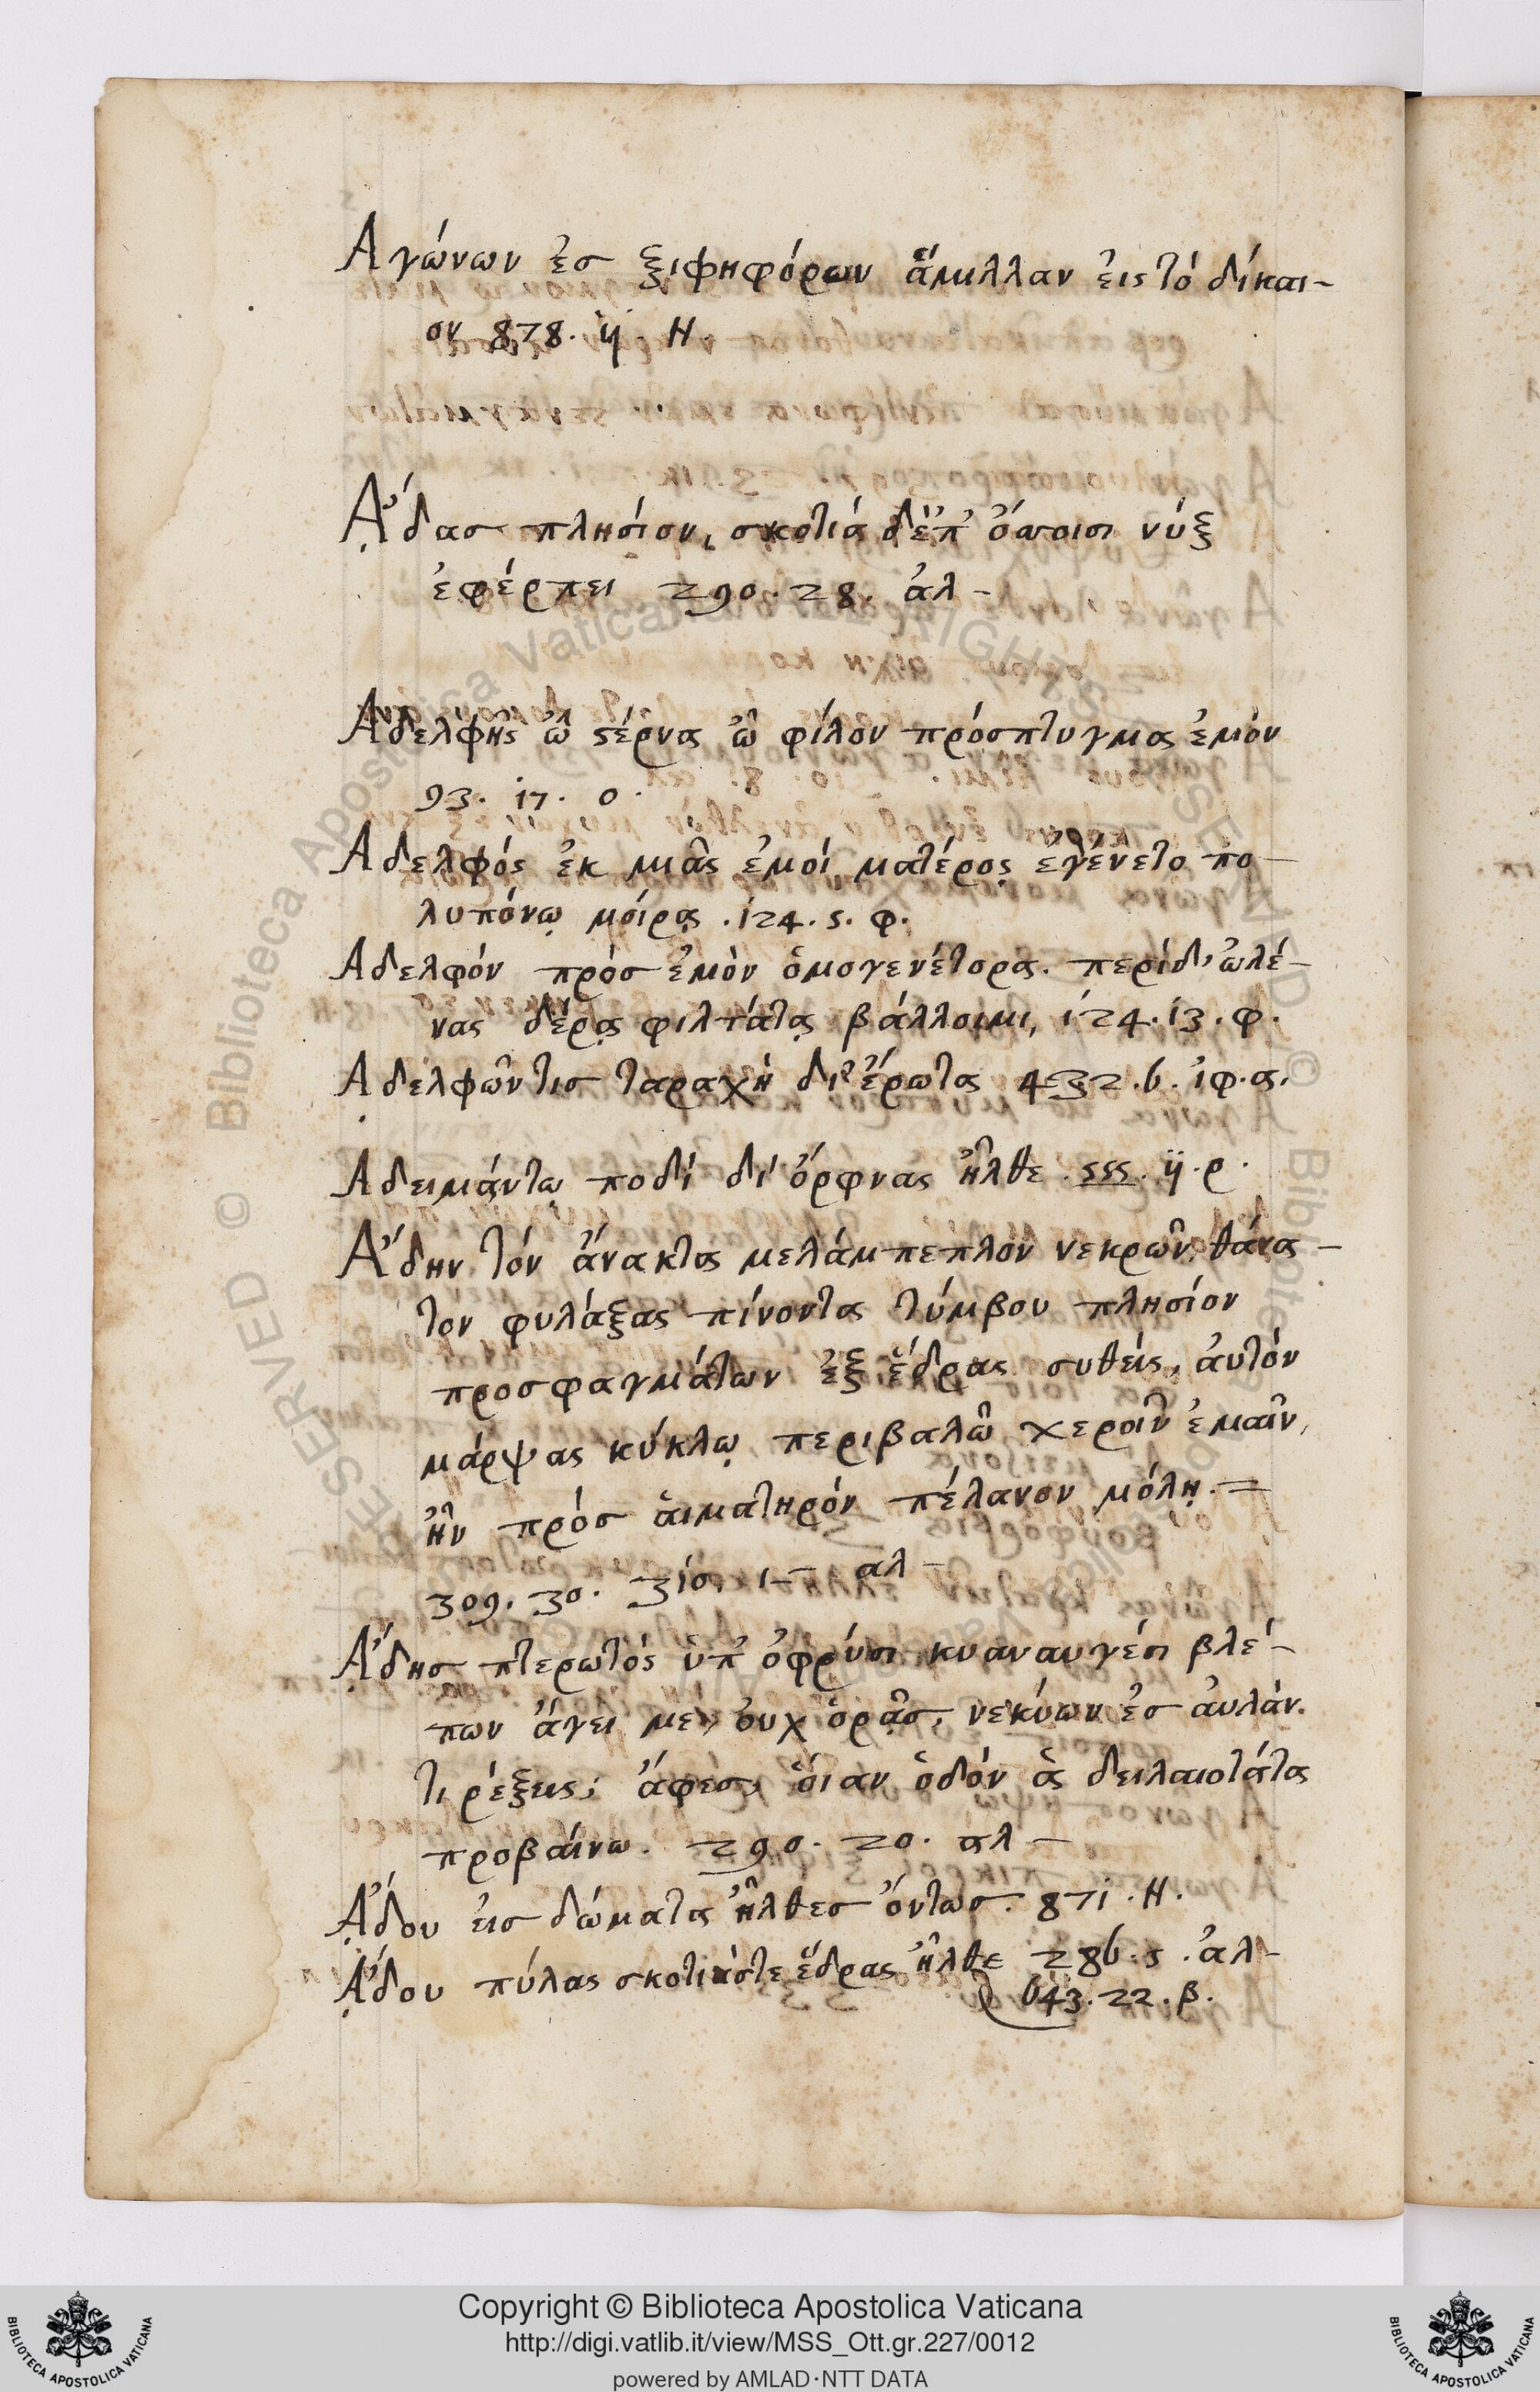 Αγώνων ἐσ ξιφηφόρων ἅμιλλαν ἐις τὸ δίκαι-
ον 878. ij H.
Ἄ̣δασ πλησίον, σκοτιά δ' ἐπ' ὄσσοισι νύξ
ἐφέρπει 290. 28. ἀλ -
Αδελφῆς ὦ ςέρνα ὦ φίλον πρόσπτυγμα ἐμὸν
93. 17. ο.
Αδελφός ἐκ μιᾶς ἐμοί ματέρος ἐγένετο πο-
λυπόνῳ μόιρᾳ . 124. 5. φ.
Αδελφόν πρὸσ ἐμὸν ὁμογενέτορα. περὶ δ' ὠλέ-
νας δέρᾳ φιλτάτᾳ βάλλοιμι, 124. 13. φ.
Αδελφῶν τισ ταραχὴ δι' ἔρωτα 432. 6. ἰφ. α.
Αδειμάντῳ ποδί δι' ὄρφνας ἦλθε . 555. ij. ρ.
Ἄδην τόν ἄνακτα μελάμπεπλον νεκρῶν θάνα-
τον φυλάξας πίνοντα τύμβου πλησίον
προσφαγμάτων ἐξ ἕδρας συθείς, ἀυτόν
μάρψας κύκλῳ περιβαλῶ χεροῖν ἐμαῖν,
ἢν πρὸσ ἁιματηρόν πέλανον μόλῃ. =
309. 30. 310. 1 - αλ -
Ἄ̣δησ πτερωτός ὑπ' ὀφρύσι κυαναυγέσι βλέ-
πων ἄγει με, ὀυχ ὁρᾷσ, νεκύων ἐσ ἀυλάν.
τι ῥέξεις; ἄφεσ, ὁίαν ὁδόν ἁ δειλαιοτάτα
προβάινω. 290. 20. αλ -
Ἄ̣δου ἐισ δώματα ἦλθεσ ὄντωσ. 871. H.
Ἄ̣δου πύλας σκοτιάς τε ἕδρας ἦλθε 286. 5. ἀλ -
643. 22. β.
Copyright © Biblioteca Apostolica Vaticana
http://digi.vatlib.it/view/MSS_Ott.gr.227/0012
powered by AMLAD·NTT DATA
BIBLIOTECA APOSTOLICA VATICANA
BIBLIOTECA APOSTOLICA VATICANA